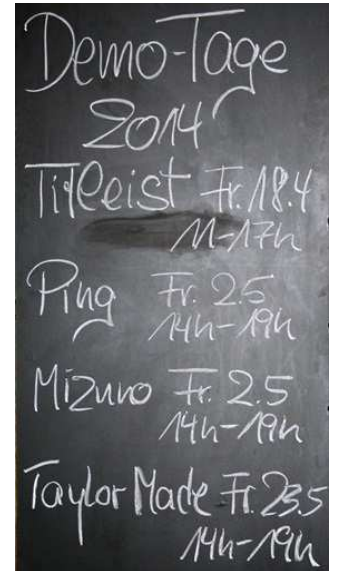 Demo-Tage
2014
Titleist Fr. 18.4
11-17h
Ping Fr. 2.5
14h-19h
Mizuno Fr. 2.5
14h-19h
Taylor Made Fr. 23.5
14h-19h